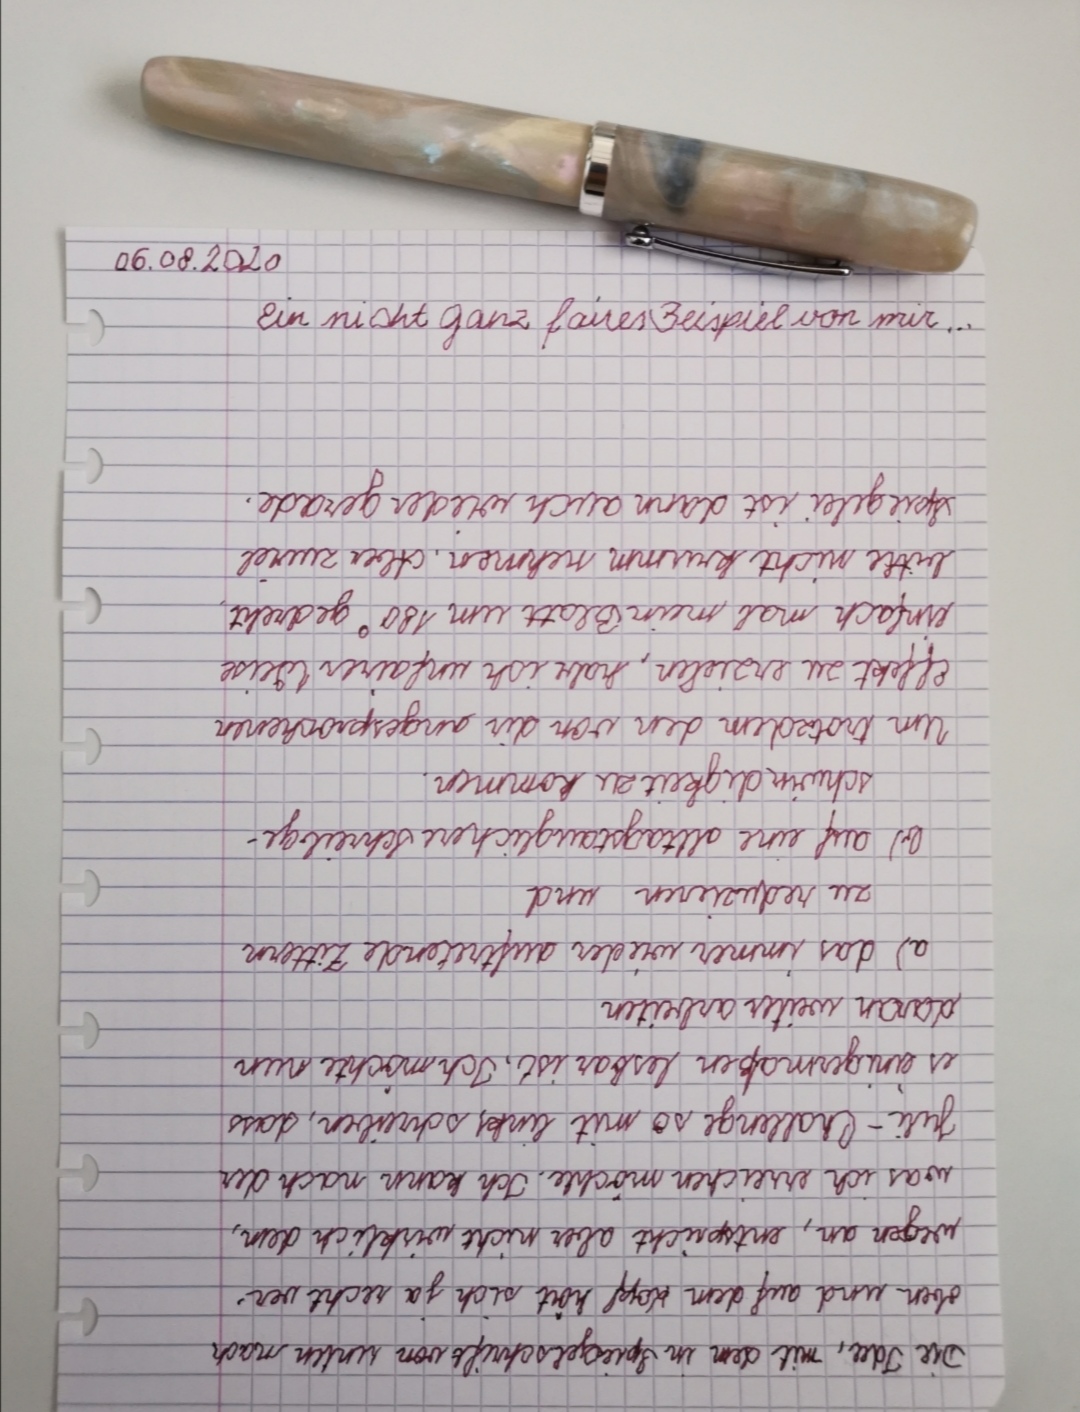 06.08.2020
Ein nicht ganz faires Beispiel von mir...
Die Idee, mit dem in Spiegelschrift von unten nach
oben und auf dem Kopf hört sich ja recht ver-
wegen an, entspricht aber nicht wirklich dem,
was ich erreichen möchte. Ich kann nach der
Juli-Challenge so mit links schreiben, dass
es einigermaßen lesbar ist. Ich möchte nun
daran weiter arbeiten
a) das immer wieder auftretende Zittern
zu reduzieren und
b) auf eine alltagstauglichere Schreibge-
schwindigkeit zu kommen.
Um trotzdem den von dir angesprochenen
Effekt zu erzielen, habe ich unfairer Weise
einfach mal mein Blatt um 180° gedreht,
bitte nicht krumm nehmen. Aber zuviel
Spiegelei ist dann auch wieder gerade.